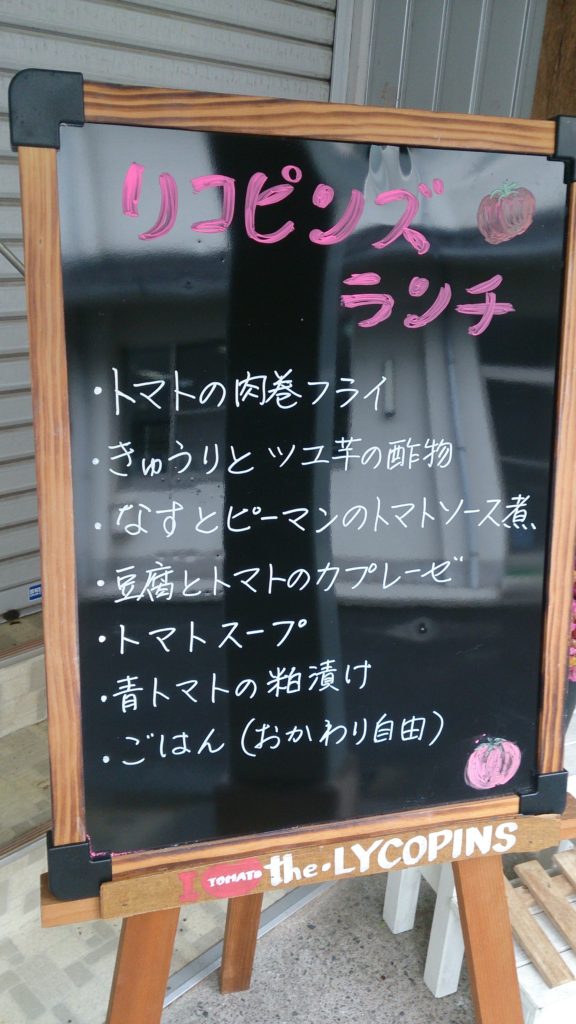 リコピンズ
ランチ
・トマトの肉巻フライ
・きゅうりとツユ芋の酢物
・なすとピーマンのトマトソース煮
・豆腐とトマトのカプレーゼ
・トマトスープ
・青トマトの粕漬け
・ごはん(おかわり自由)
I TOMATO the・LYCOPINS